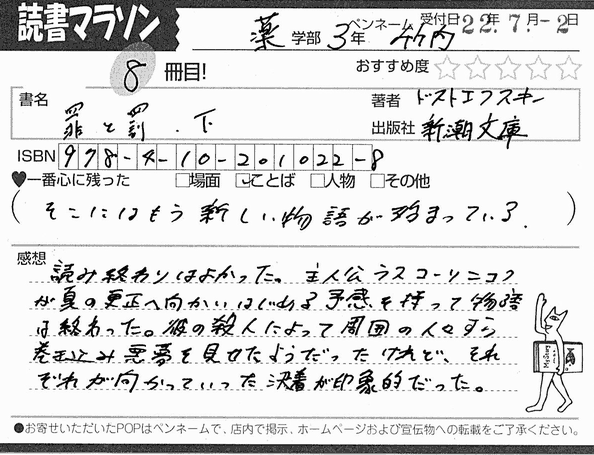 読書マラソン
薬 学部 3年 ペンネーム 竹内 受付日 22年 7月-2日
8 冊目!
おすすめ度 ☆☆☆☆☆
書名 罪と罰.下
著者 ドストエフスキー
出版社 新潮文庫
ISBN 978-4-10-201022-8
♥一番心に残った □場面 ☑ことば □人物 □その他
(そこにはもう新しい物語が始まっている.)
感想
読み終わりはよかった。主人公ラスコーリニコフ
が真の更正へ向かいはじめる予感を持って物語
は終わった。彼の殺人によって周囲の人々すら
巻き込み悪夢を見せたようだったけれど、それ
ぞれが向かっていった決着が印象的だった。
●お寄せいただいたPOPはペンネームで、店内で掲示、ホームページおよび宣伝物への転載をご了承ください。